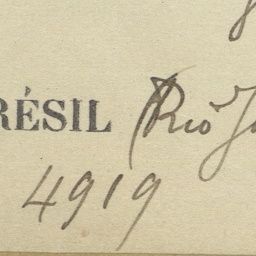 RÉSIL (Rio
4919